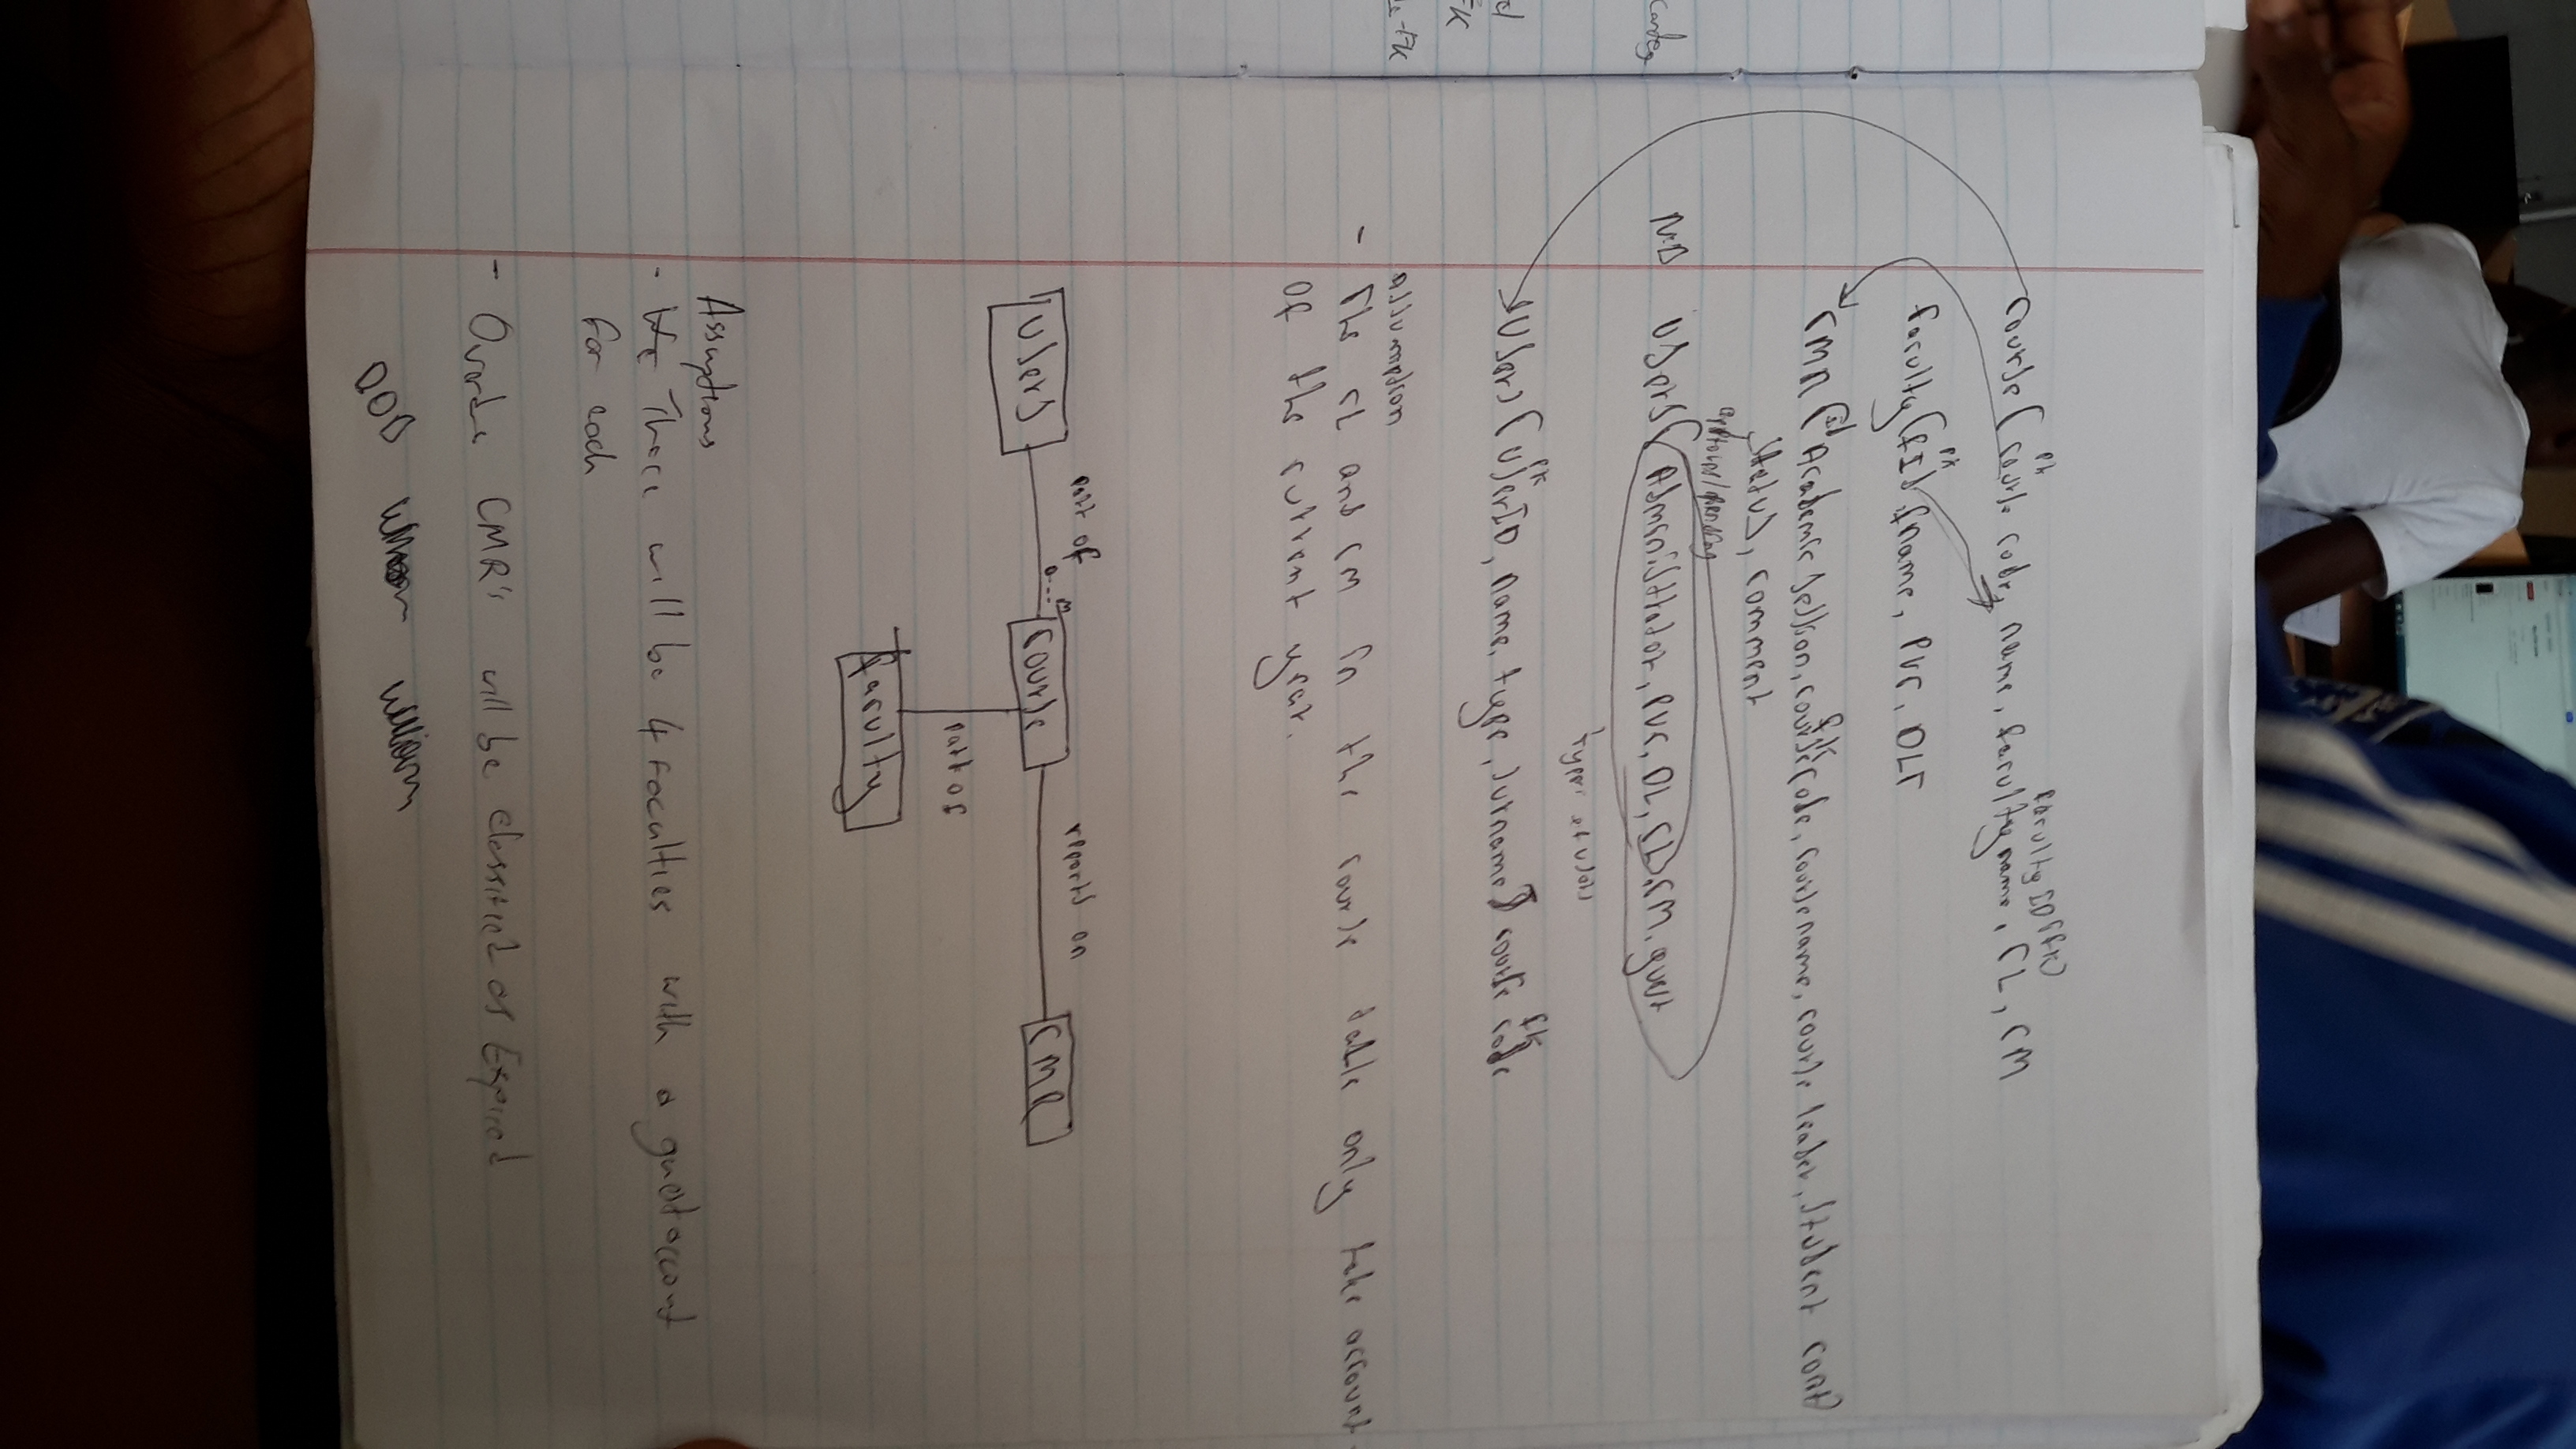 pk
faculty ID (fk)
course (course code, name, faculty name, CL, CM
pk
faculty (fID, fname, PVC, DLT
fk
CMR (id Academic session, course code, course name, course leader, student cont)
status, comment
/pending
N.B users (Administrator, PVC, DL, CL, CM, guest
type of users
pk fk
Users (UserID, name, type, surname) course code
assumption
- The CL and CM in the course table only take account
of the current year.
part of
reports on
0...M
Users course CMR
part of
faculty
Assuptions
- We There will be 4 faculties with a guest account
for each
- Overdue CMR's will be classified as Expired
william
FK
-FK